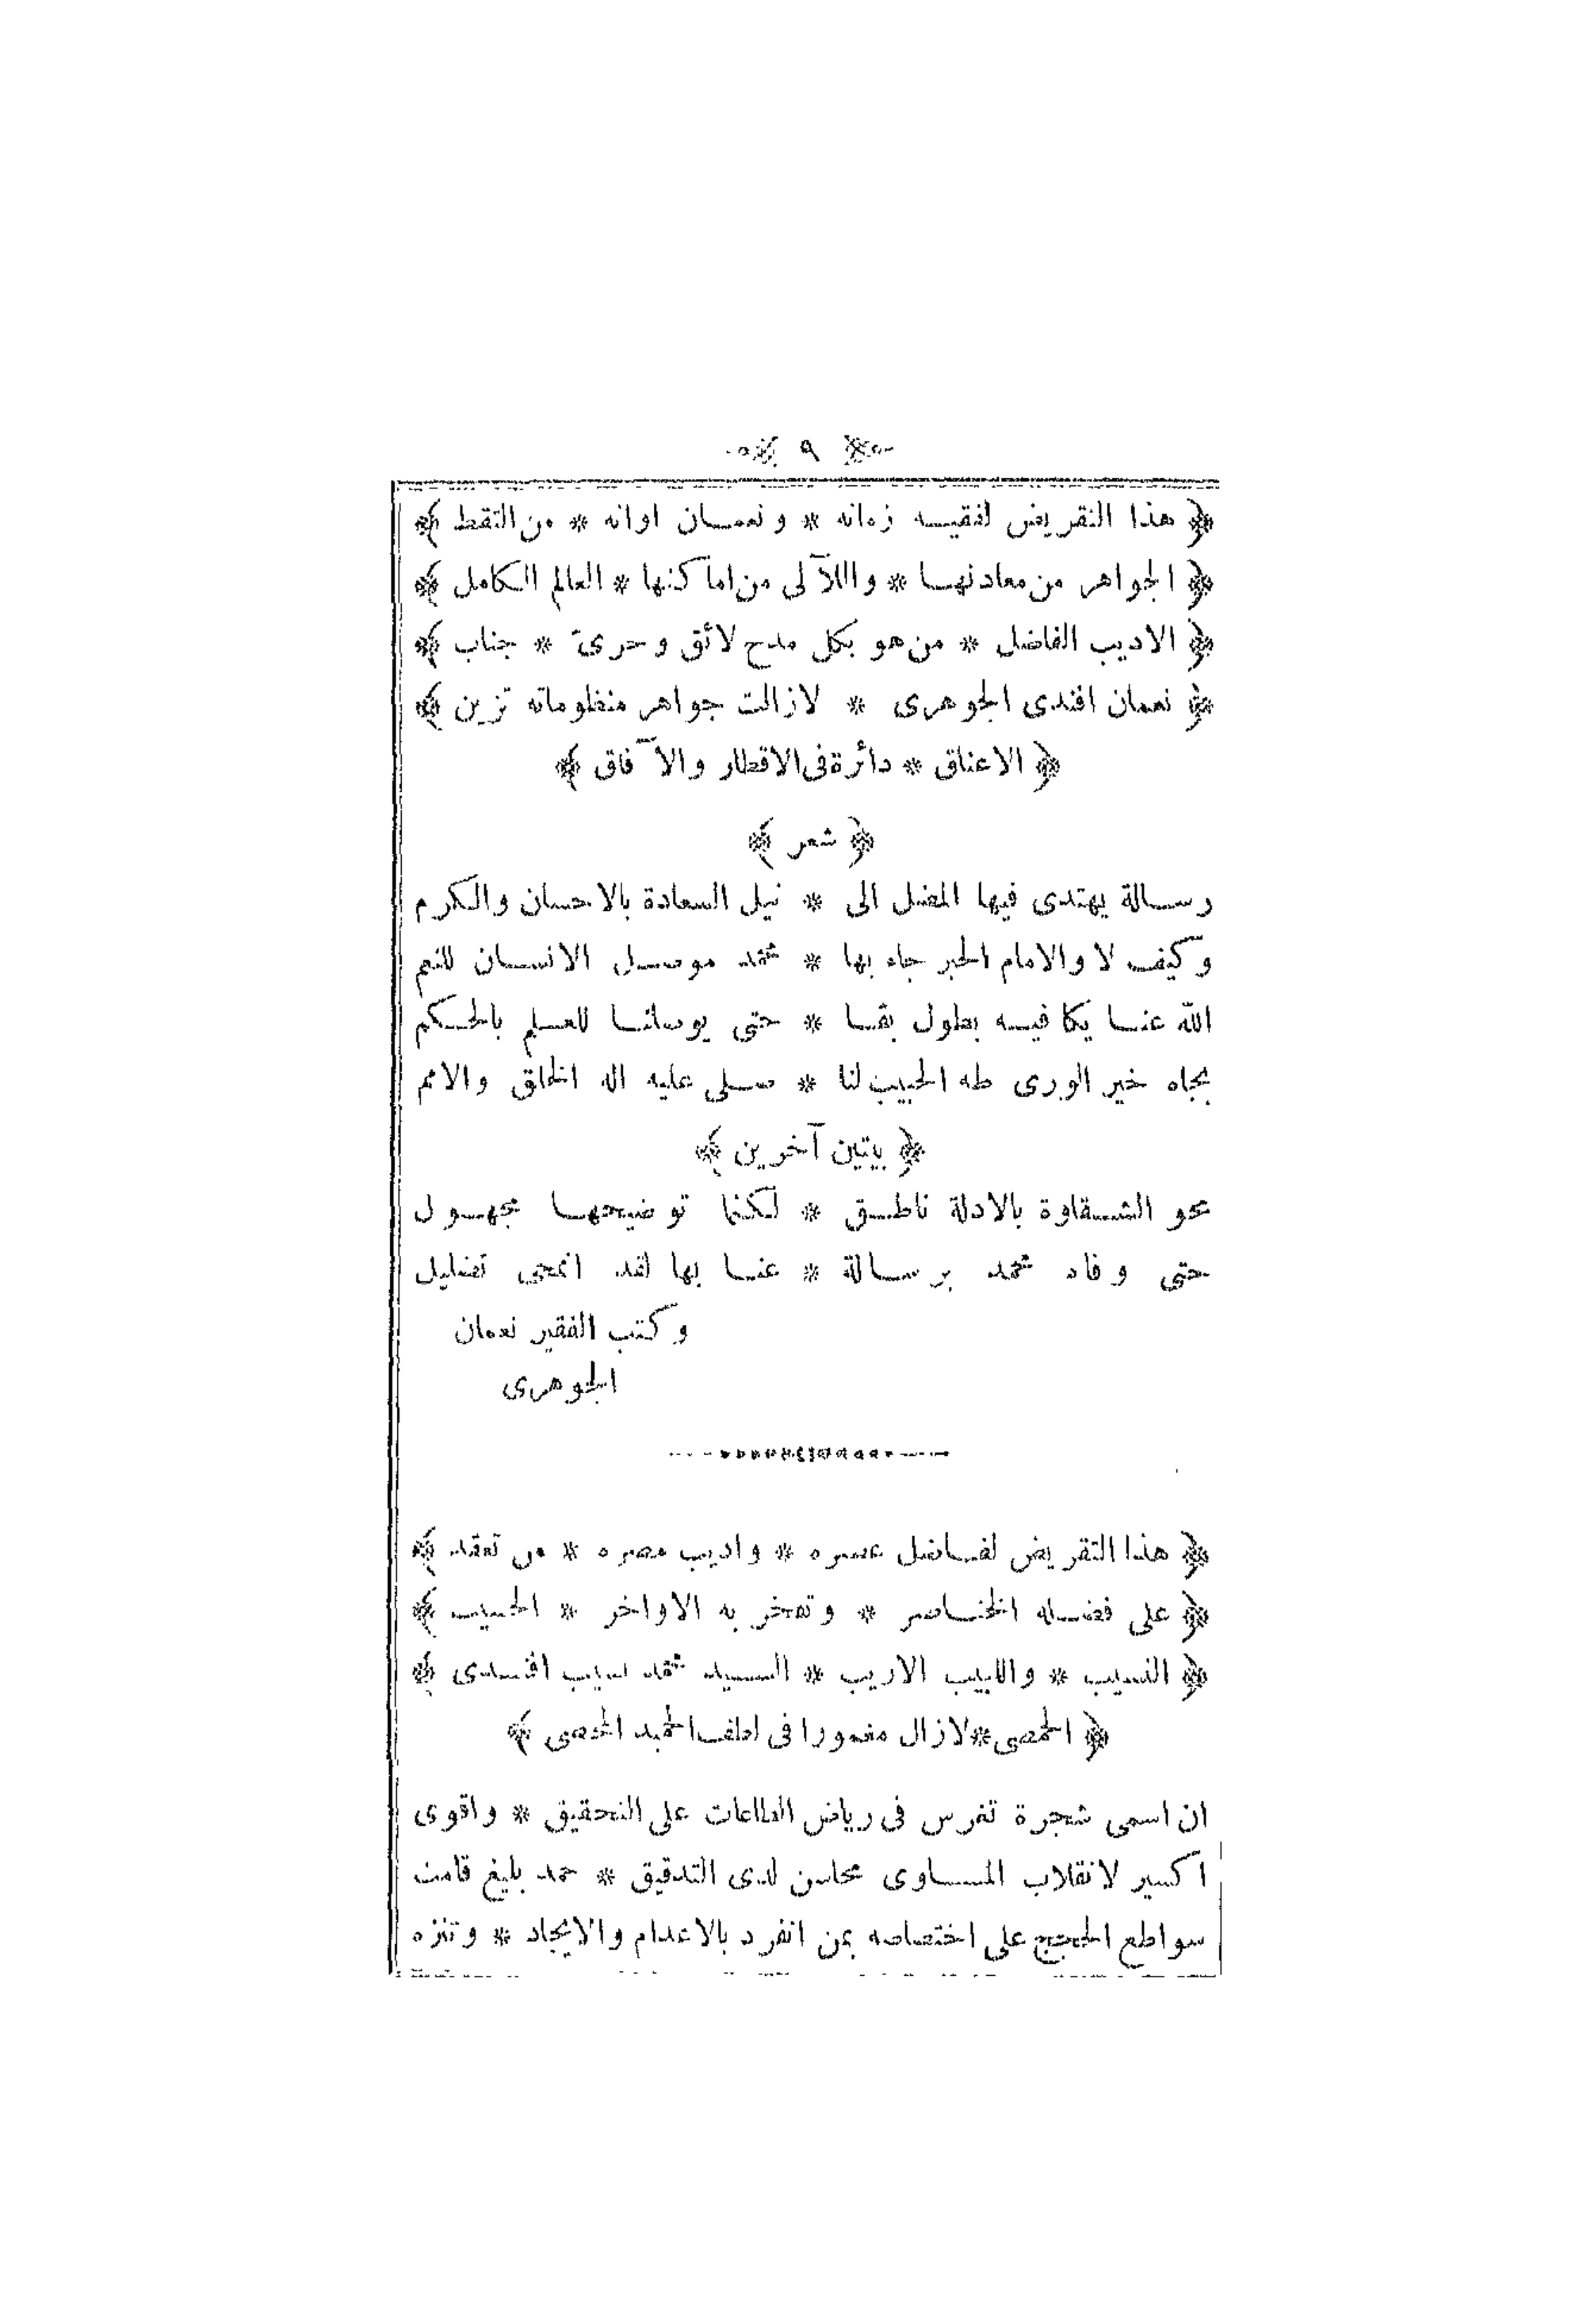 ٩
﴿ هذا التقريض لفقيه زمانه * ونعمان اوانه * من التقط ﴾
﴿ الجواهر من معادنها * واللآلى من اماكنها * العالم الكامل ﴾
﴿ الاديب الفاضل * من هو بكل مدح لائق وحرى * جناب ﴾
﴿ نعمان افندى الجوهرى * لازالت جواهر منظوماته تزين ﴾
﴿ الاعناق * دائرة فى الاقطار والآفاق ﴾
﴿ شعر ﴾
رسالة يهتدى فيها المضل الى * نيل السعادة بالاحسان والكرم
وكيف لا والامام الحبر جاء بها * محمد موصل الانسان للنعم
الله عنا يكافيه بطول بقا * حتى يوصلنا للعلم بالحكم
بجاه خير الورى طه الحبيب لنا * صلى عليه اله الخلق والامم
﴿ بيتين آخرين ﴾
محو الشقاوة بالادلة ناطق * لكنما توضيحها مجهول
حتى وفاه محمد برسالة * عنا بها لقد انمحى تضليل
وكتب الفقير نعمان
الجوهرى
﴿ هذا التقريض لفاضل عصره * واديب مصره * من تعقد ﴾
﴿ على فضله الخناصر * وتفخر به الاواخر * الحسيب ﴾
﴿ النسيب * واللبيب الاريب * السيد محمد افندى ﴾
﴿ الحمصى * لازال مغمورا فى لطف ﴾
ان اسمى شجرة تغرس فى رياض الطاعات على التحقيق * واقوى
اكسير لانقلاب المساوى محاسن لدى التدقيق * حمد بليغ قامت
سواطع الحجج على اختصاصه بمن انفرد بالاعدام والايجاد * وتنزه